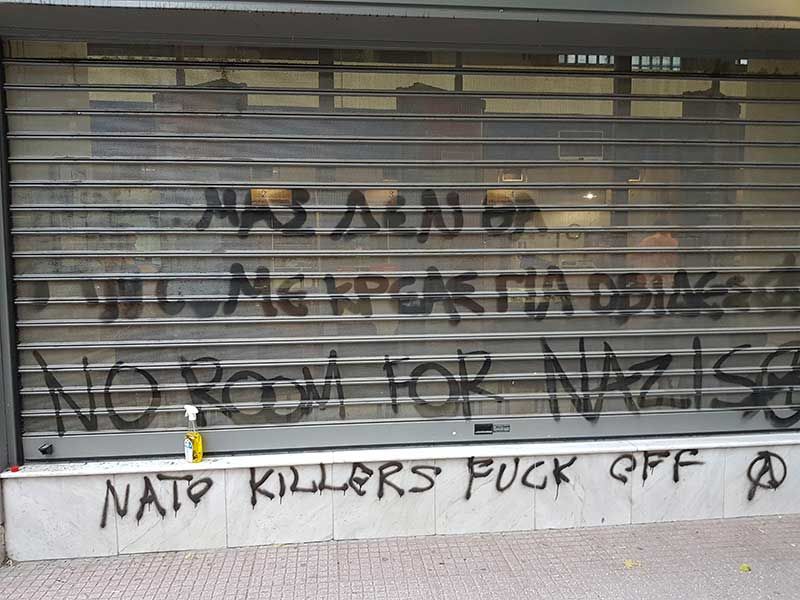 ΜΑΣ ΔΕΝ ΘΑ
ΜΕ ΚΡΕΑΣ ΓΙΑ ΟΒΙΔΕΣ
NO ROOM FOR NAZIS
NATO KILLERS FUCK OFF